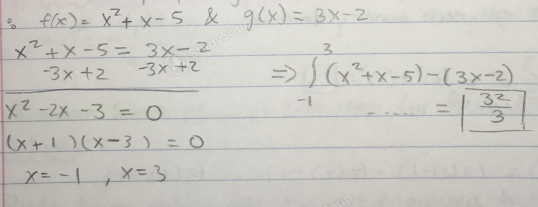 ∴ f(x) = x² + x - 5 & g(x) = 3x - 2
x² + x - 5 = 3x - 2
-3x + 2 -3x + 2
x² - 2x - 3 = 0
(x + 1)(x - 3) = 0
x = -1 , x = 3
⇒ ∫₋₁³ (x² + x - 5) - (3x - 2)
..... = 32/3